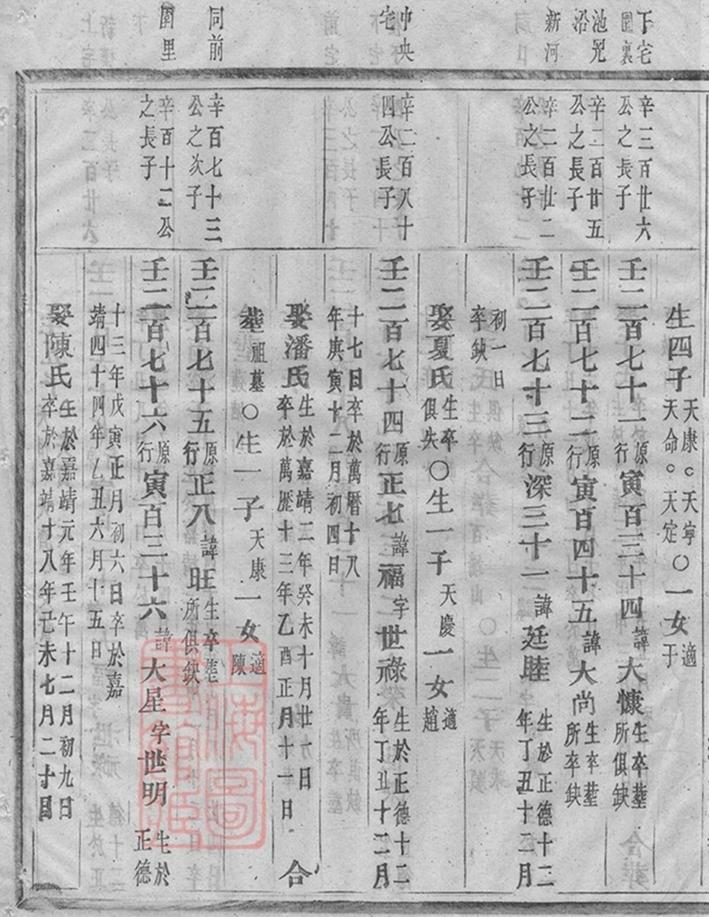 生四子天康○天寧天命○天定○一女適于
下宅園裏
辛三百廿六公之長子
壬二百七十一原行寅百三十四諱大慷生卒塟所俱缺
池兒沿
辛二百廿五公之長子
壬二百七十二原行寅百四十五諱大尚生卒塟所卒缺
新河
辛二百廿二公之長子
壬二百七十三原行深三十一諱廷睦生於正德十二年丁丑十二月
初一日卒缺
娶夏氏生卒俱失○生一子天慶一女適趙
中央宅
辛二百八十四公長子
壬二百七十四原行正七諱福二字世祿生於正德十二年丁丑十二月
十七日卒於萬曆十八年庚寅十二月初四日
娶潘氏生於嘉靖二年癸未十月廿六日卒於萬歷十三年乙酉正月十一日合
塟祖墓○生一子天康一女適陳
同前
辛百七十三公之次子
壬二百七十五原行正八諱旺生卒塟所俱缺
園里
辛百十二公之長子
壬二百七十六原行寅百三十六諱大星字世明生於正德
十三年戊寅正月初六日卒於嘉靖四十四年乙丑六月十五日
娶陳氏生於嘉靖元年壬午十二月初九日卒於嘉靖十八年己未七月二十日